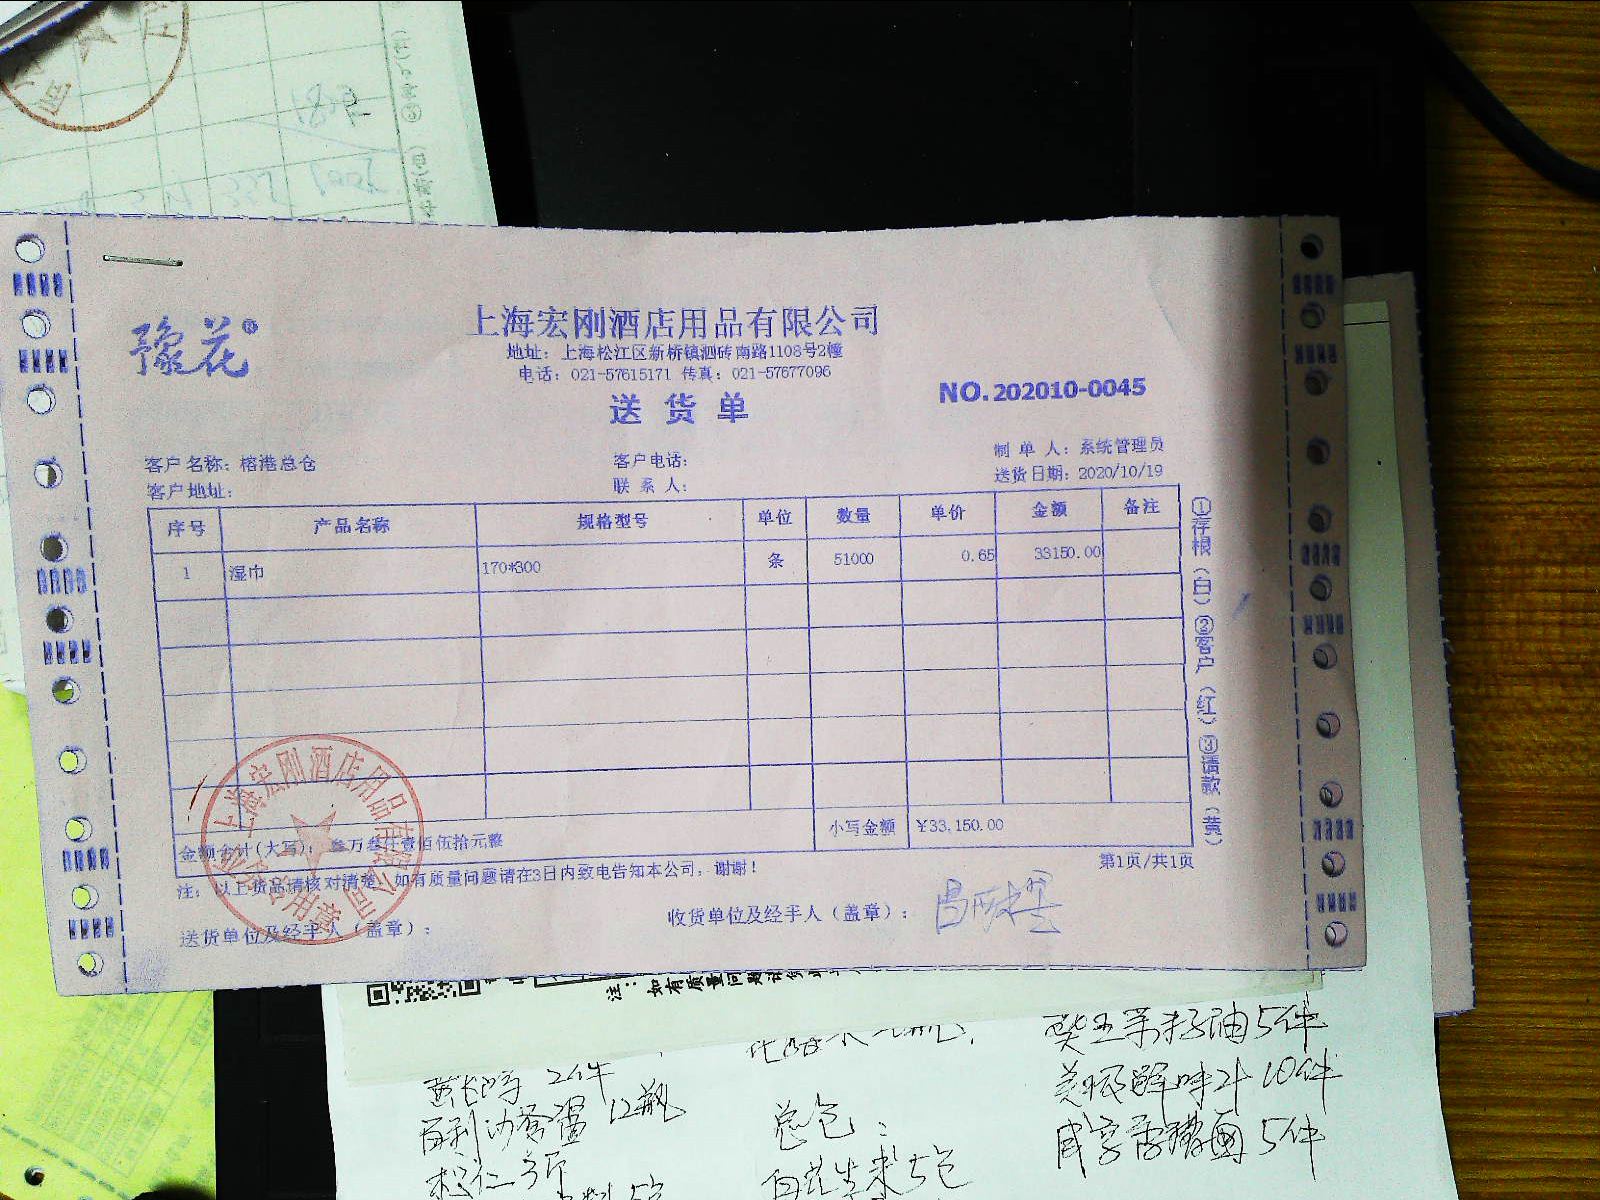 豫花®
上海宏刚酒店用品有限公司
地址：上海松江区新桥镇泗砖南路1108号2幢
电话：021-57615171 传真：021-57677096
送货单
NO.202010-0045
客户名称：榕港总仓
客户电话：
制单人：系统管理员
客户地址：
联系人：
送货日期：2020/10/19
序号 产品名称 规格型号 单位 数量 单价 金额 备注
1 湿巾 170*300 条 51000 0.65 33150.00
金额合计(大写)：叁万叁仟壹佰伍拾元整 小写金额 ¥33,150.00
注：以上货品请核对清楚，如有质量问题请在3日内致电告知本公司，谢谢！
第1页/共1页
送货单位及经手人（盖章）：
收货单位及经手人（盖章）：
①存根（白）②客户（红）③请款（黄）
上海宏刚酒店用品有限公司
注：如有质量问题请
2件
12瓶
总包：
5件
10件
5件